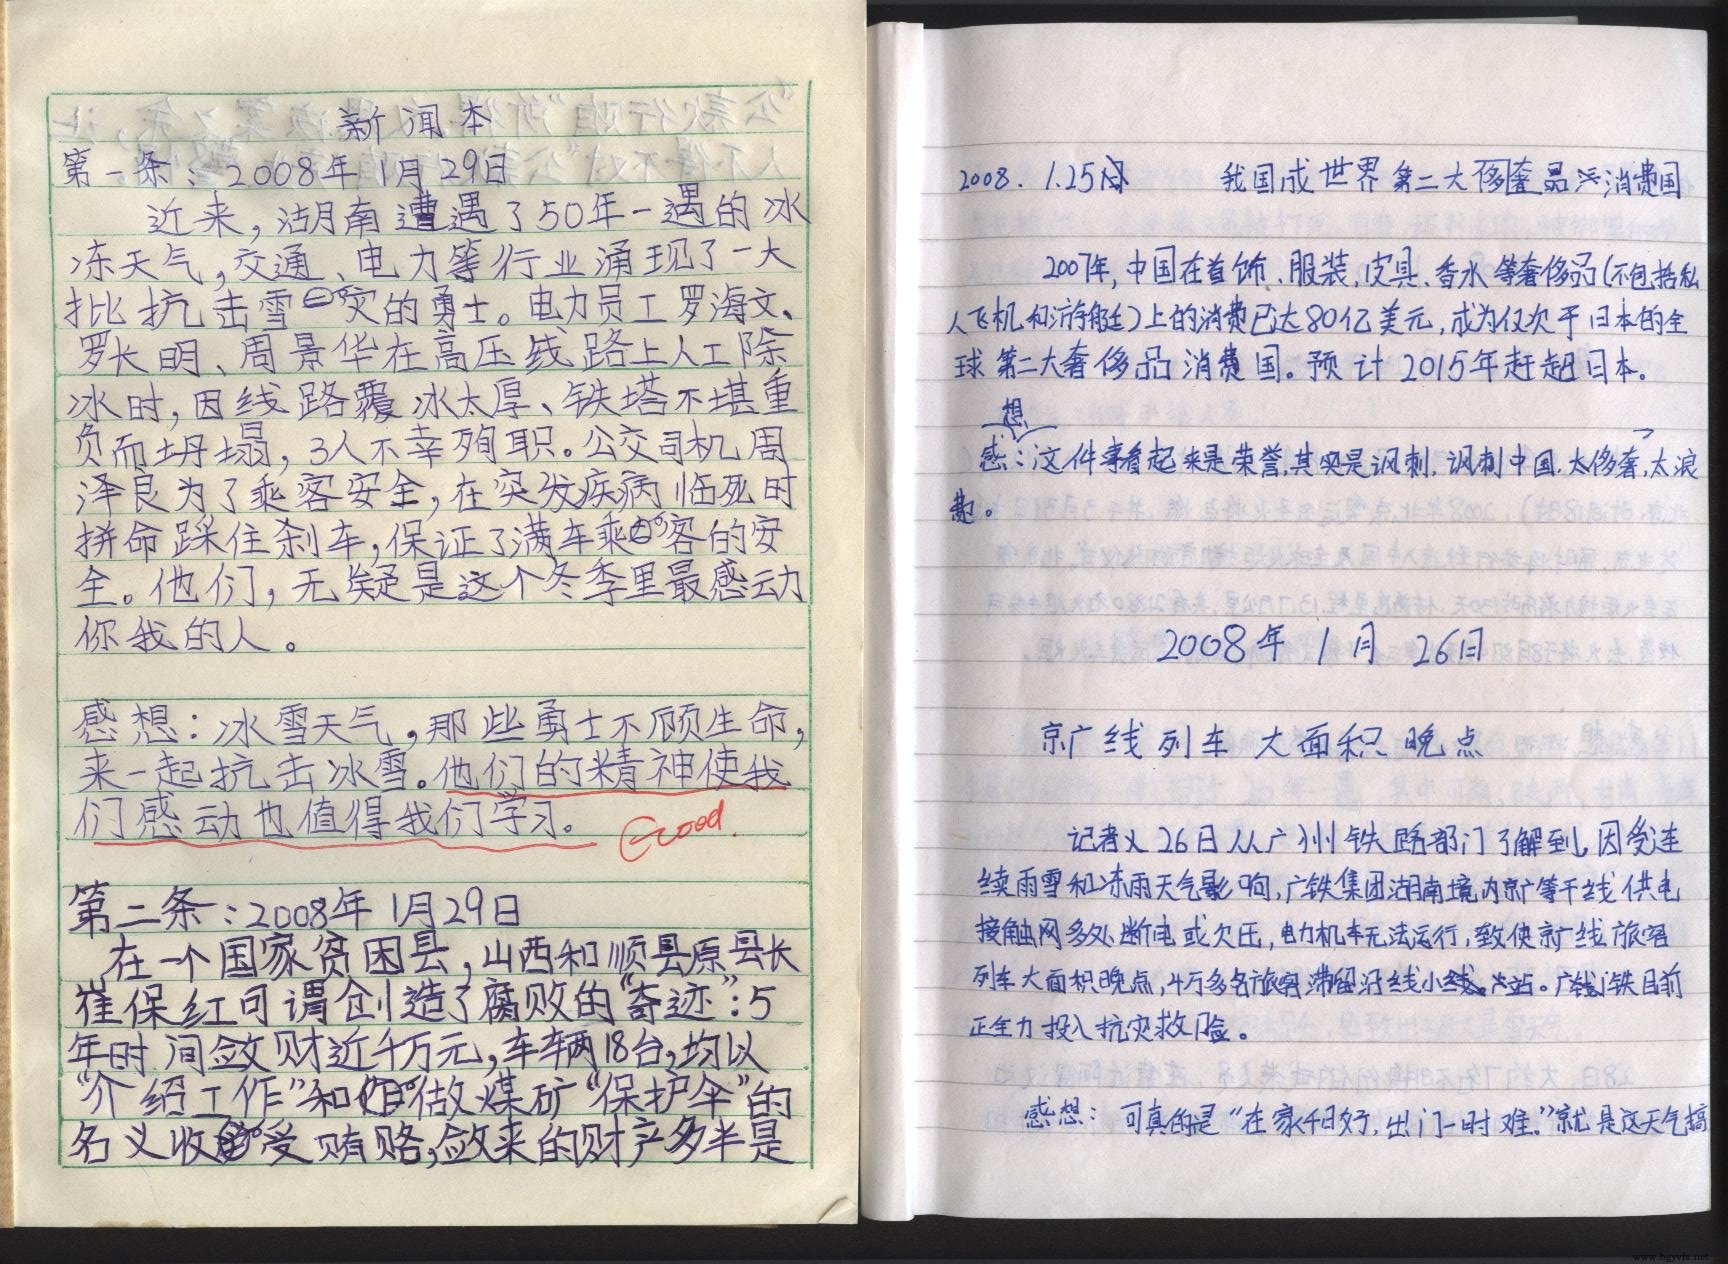 新闻本
第一条：2008年1月29日
近来，湖南遭遇了50年一遇的冰
冻天气，交通、电力等行业涌现了一大
批抗击雪灾的勇士。电力员工罗海文、
罗长明、周景华在高压线路上人工除
冰时，因线路覆冰太厚、铁塔不堪重
负而坍塌，3人不幸殉职。公交司机周
泽良为了乘客安全，在突发疾病临死时
拼命踩住刹车，保证了满车乘客的安
全。他们，无疑是这个冬季里最感动
你我的人。
感想：冰雪天气，那些勇士不顾生命，
来一起抗击冰雪。他们的精神使我
们感动也值得我们学习。
Good.
第二条：2008年1月29日
在一个国家贫困县，山西和顺县原县长
崔保红可谓创造了腐败的“奇迹”：5
年时间敛财近千万元，车车辆18台，均以
“介绍工作”和做煤矿“保护伞”的
名义收受贿赂，敛来的财产多半是
2008.1.25 我国成世界第二大侈奢品消费国
2007年，中国在首饰、服装、皮具、香水等奢侈品（不包括私
人飞机和游艇）上的消费已达80亿美元，成为仅次于日本的全
球第二大奢侈品消费国。预计2015年赶超日本。
感想：这件事看起来是荣誉，其实是讽刺，讽刺中国，太侈奢，太浪
费。
2008年1月26日
京广线列车大面积晚点
记者从26日从广州铁路部门了解到，因受连
续雨雪和冻雨天气影响，广铁集团湖南境内京广等干线供电
接触网多处断电或欠压，电力机车无法运行，致使京广线旅客
列车大面积晚点，4万多名旅客滞留沿线小站。广铁目前
正全力投入抗灾救险。
感想：可真的是“在家千日好，出门一时难。”就是这天气搞
www.bgyyfs.net